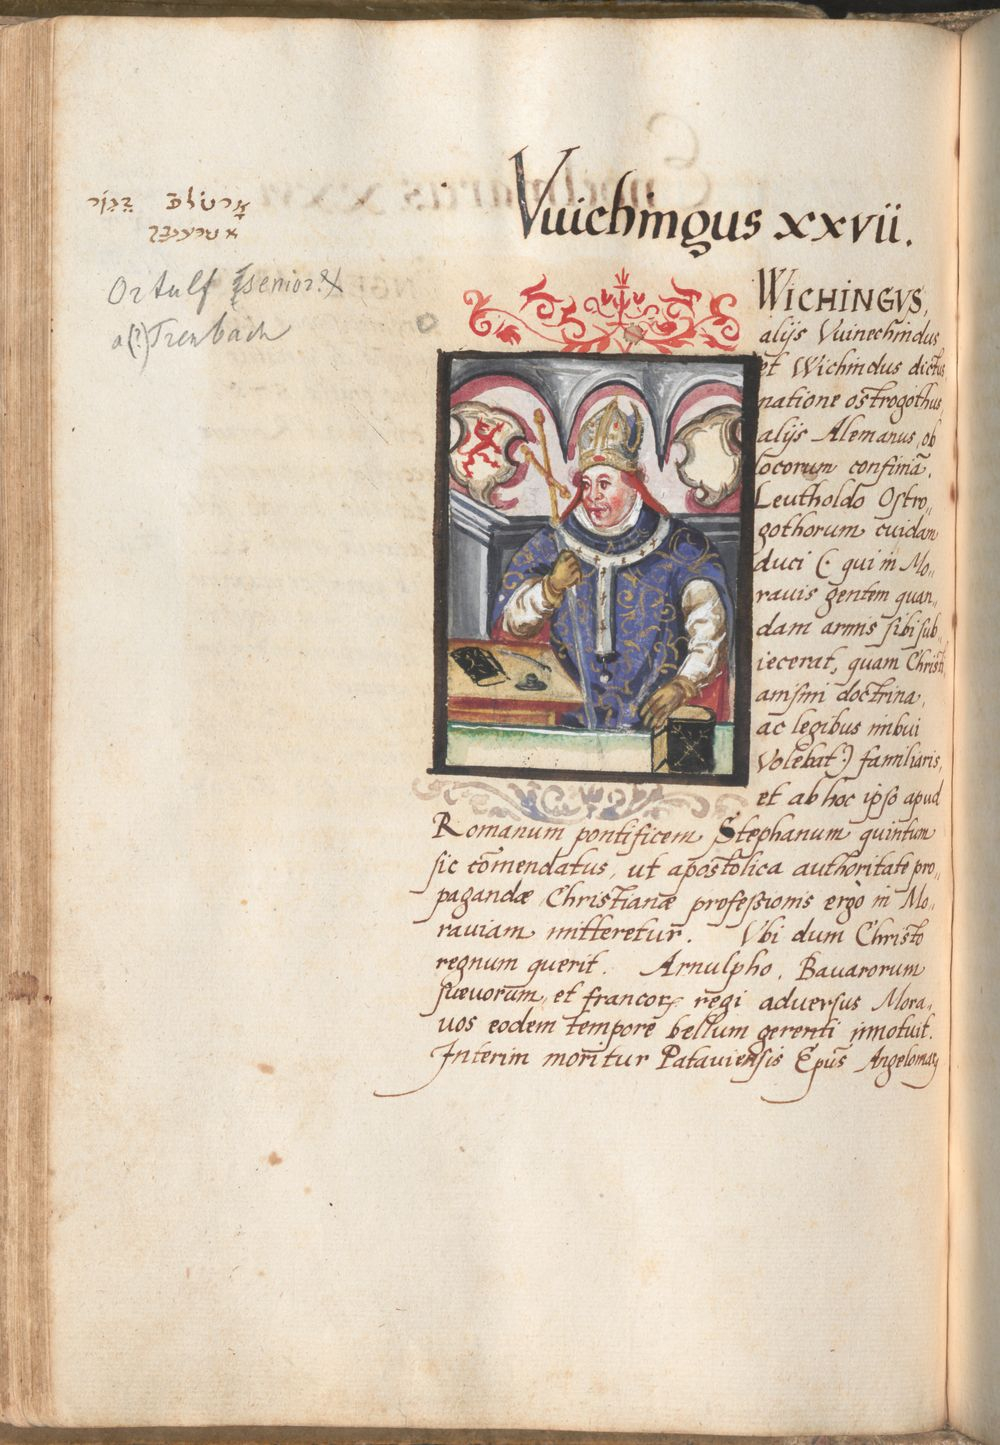 Vuichingus xxvii.
Ortulf senior
a(?) Trenbach
WICHINGVS,
alijs Vuinechindus
et Wichindus dictus
natione ostrogothus
alijs Alemanus, ob
locorum confiniā.
Leutholdo Ostro„
gothorum cuidam
duci (: qui in Mo„
rauis gentem quan„
dam armis sibi sub„
iecerat, quam Christi
anissimi doctrina,
ac legibus imbui
Volebat:) familiaris,
et ab hoc ipso apud
Romanum pontificem Stephanum quintum
sic cōmendatus, ut apostolica authoritate pro„
pagandæ Christianæ professionis ergo in Mo„
rauiam mitteretur. Vbi dum Christo
regnum querit. Arnulpho, Bauarorum
suevorum, et francorꝝ regi adversus Mora„
uos eodem tempore bellum gerenti innotuit.
Interim moritur Patauiensis Epūs Angelomarꝯ